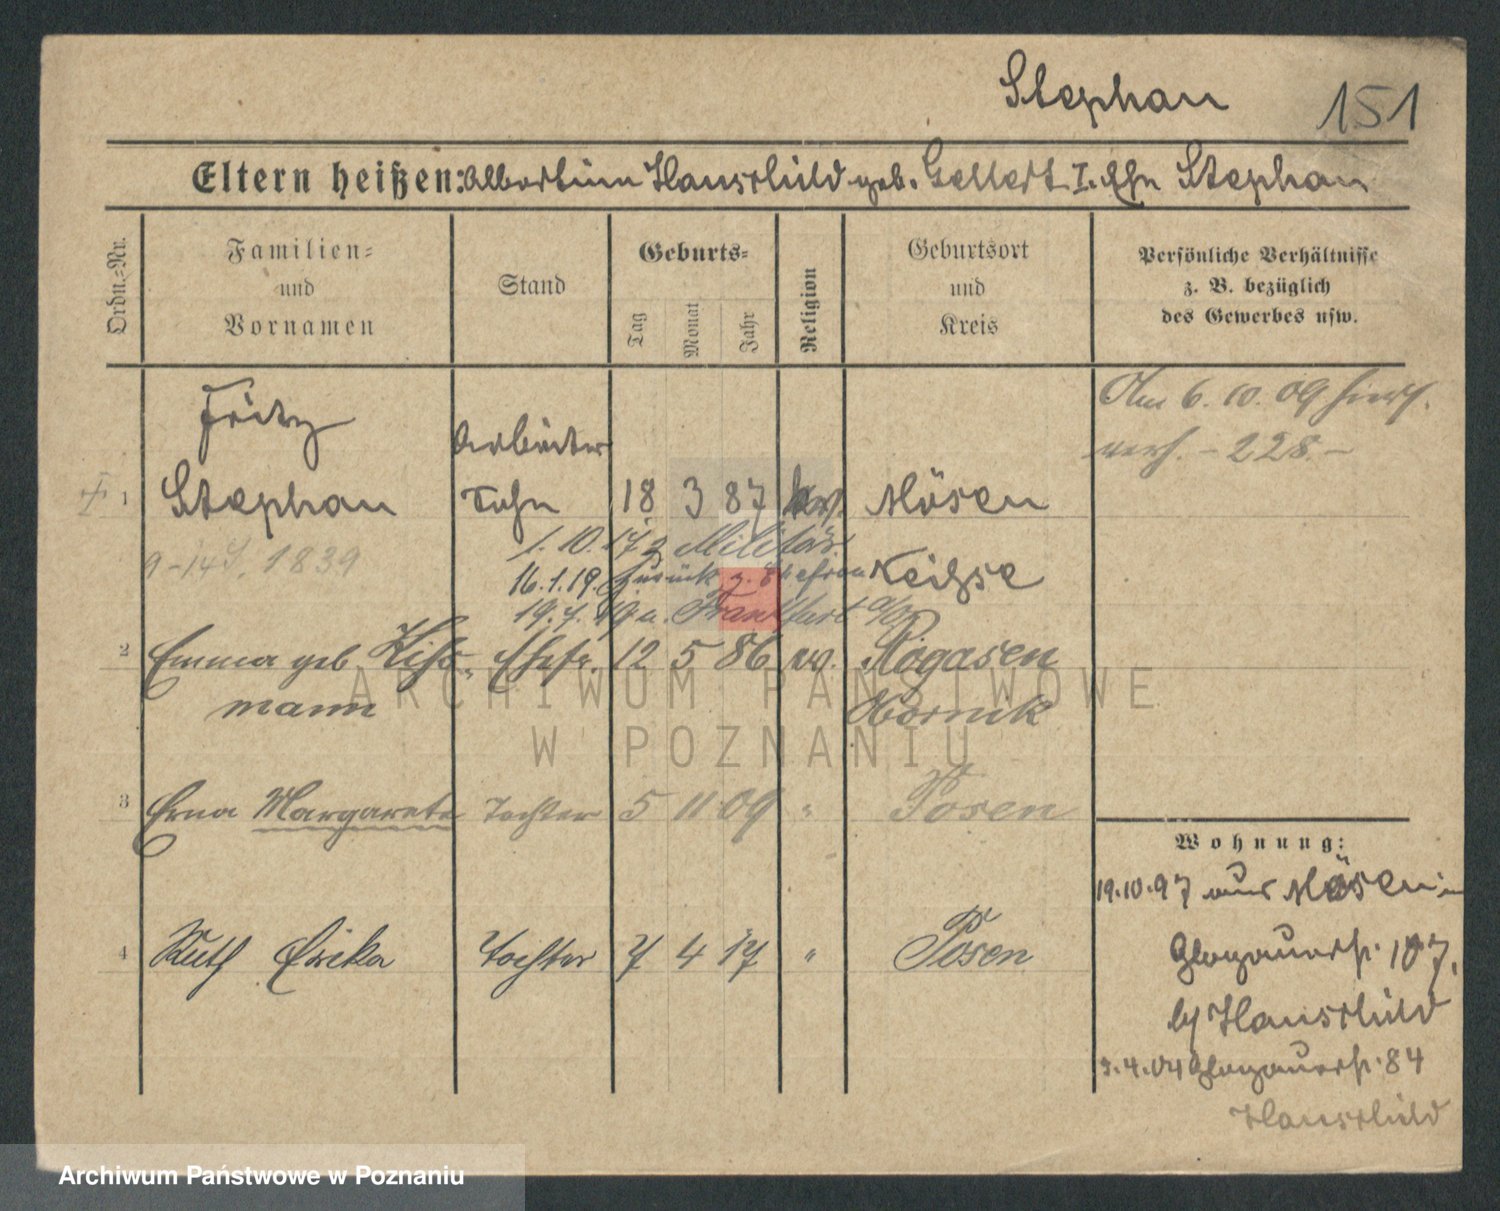 Stephan
151
Eltern heißen: Albertine Hauschild geb. Gellert I. Ehe Stephan
Ordn.=Nr.
Familien=
und
Vornamen
Stand
Geburts=
Tag
Monat
Jahr
Religion
Geburtsort
und
Kreis
Persönliche Verhältnisse
z. B. bezüglich
des Gewerbes usw.
Am 6. 10. 09
228.-
Fritz
Arbeiter
1 Stephan Sohn 18 3 87 ev. Mösen
1839
1. 10. 17 z Militär.
16. 1. 19. zurück z. Ehefrau
Frankfurt a/O
2 Emma geb Ehefr. 12 5 86 ev. Rogasen
mann Obornik
3 Erna Margarete Tochter 5 11 09 " Posen
4 Ruth Erika Tochter 7 4 17 " Posen
Wohnung:
19.10.97 aus Mösen in
Glogauerstr. 107.
by Hauschild
3.4.04 Glogauerstr. 84
Hauschild
ARCHIWUM PAŃSTWOWE
W POZNANIU
Archiwum Państwowe w Poznaniu